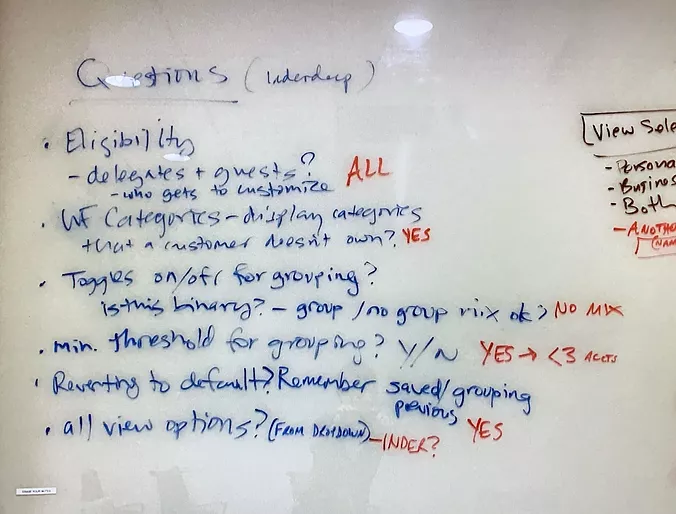 Questions (Inderdeep)
• Eligibility
- delegates + guests? ALL
- who gets to customize
• WF Categories - display categories
that a customer doesn't own? YES
• Toggles on/off for grouping?
is this binary? - group / no group mix ok? NO MIX
• min. threshold for grouping? Y/N YES → <3 ACCTS
• Reverting to default? Remember saved/grouping
previous YES
• all view options? (FROM DROPDOWN) - INDER?
View Sele
- Persona
- Busines
- Both
- ANOTHE
NAM